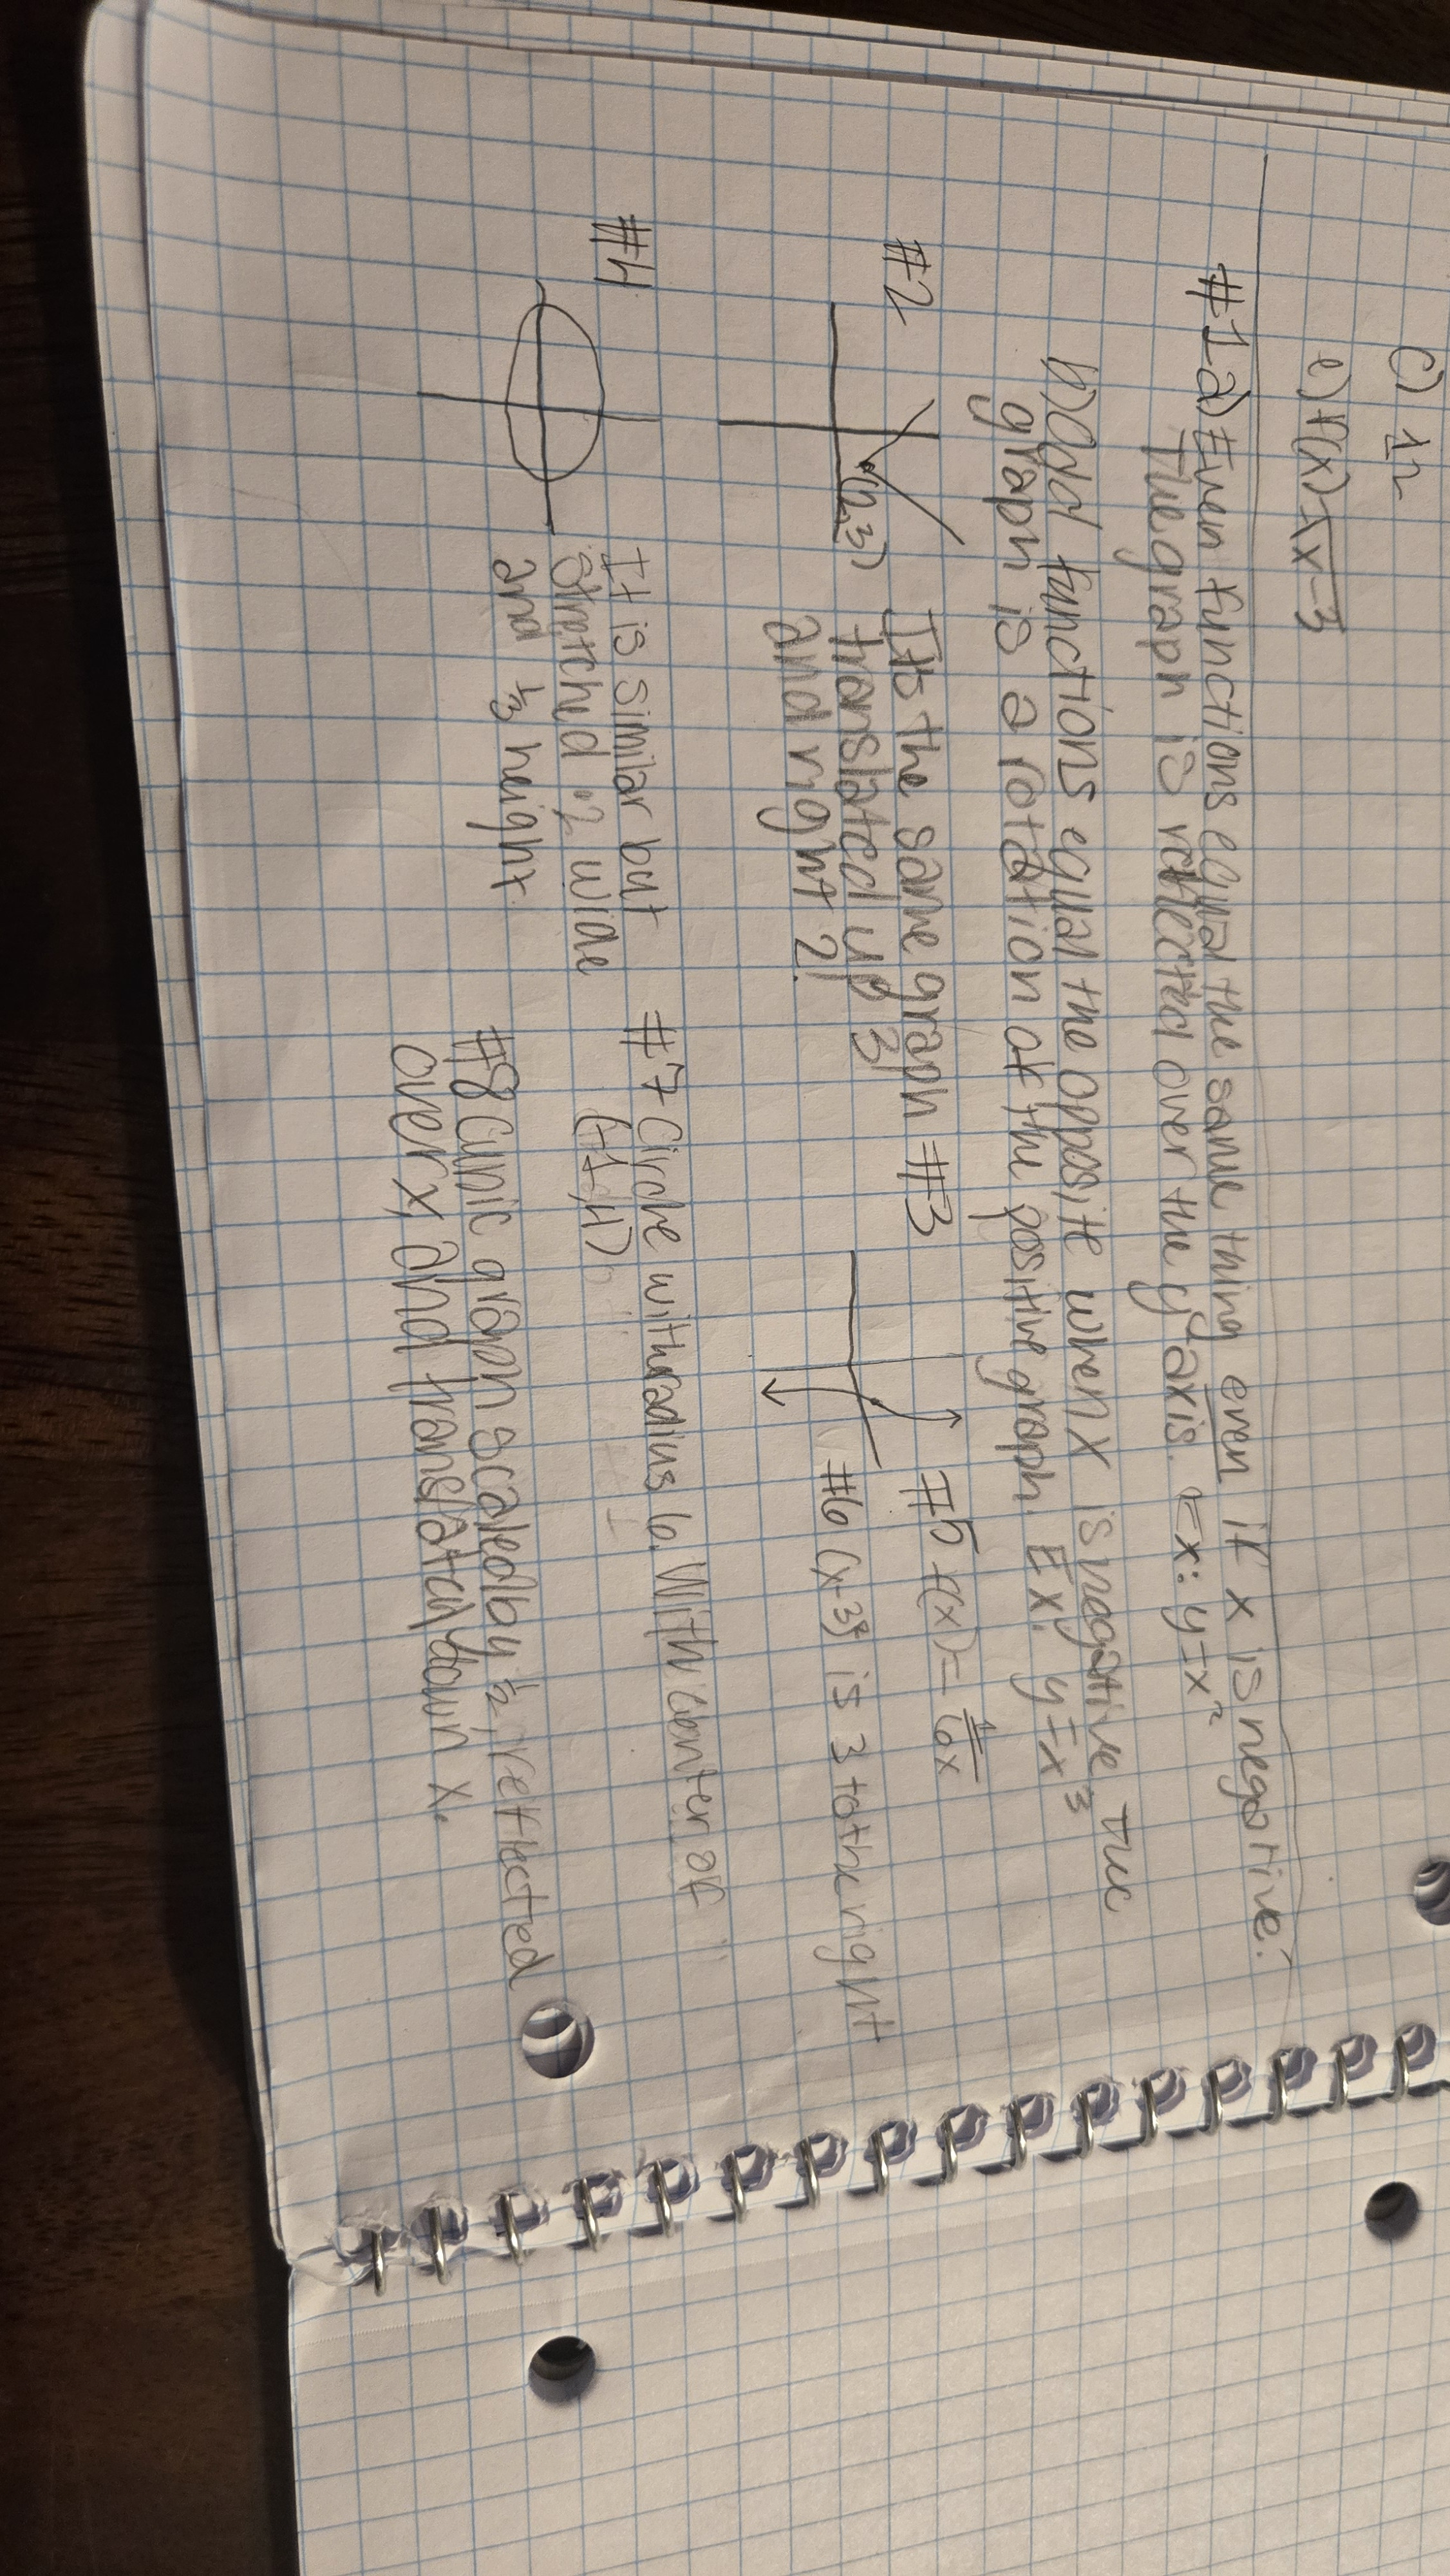 c) 12
e) f(x) √x-3
#1 a) Even functions equal the same thing even if x is negative.
The graph is reflected over the y-axis. Ex: y=x²
b) Odd functions equal the opposite when x is negative. The
graph is a rotation of the positive graph. Ex: y=x³
#2
(2,3)
It's the same graph
translated up 3
and right 2.
#3
#5 f(x)= 1/6x
#6 (x-3)² is 3 to the right
#4
It is similar but
Stretched 2 wide
and 1/3 height.
#7 Circle with radius 6. With center of
(-1,4)
#8 Cubic graph scaled by 1/2, reflected
over x, and translated down x.